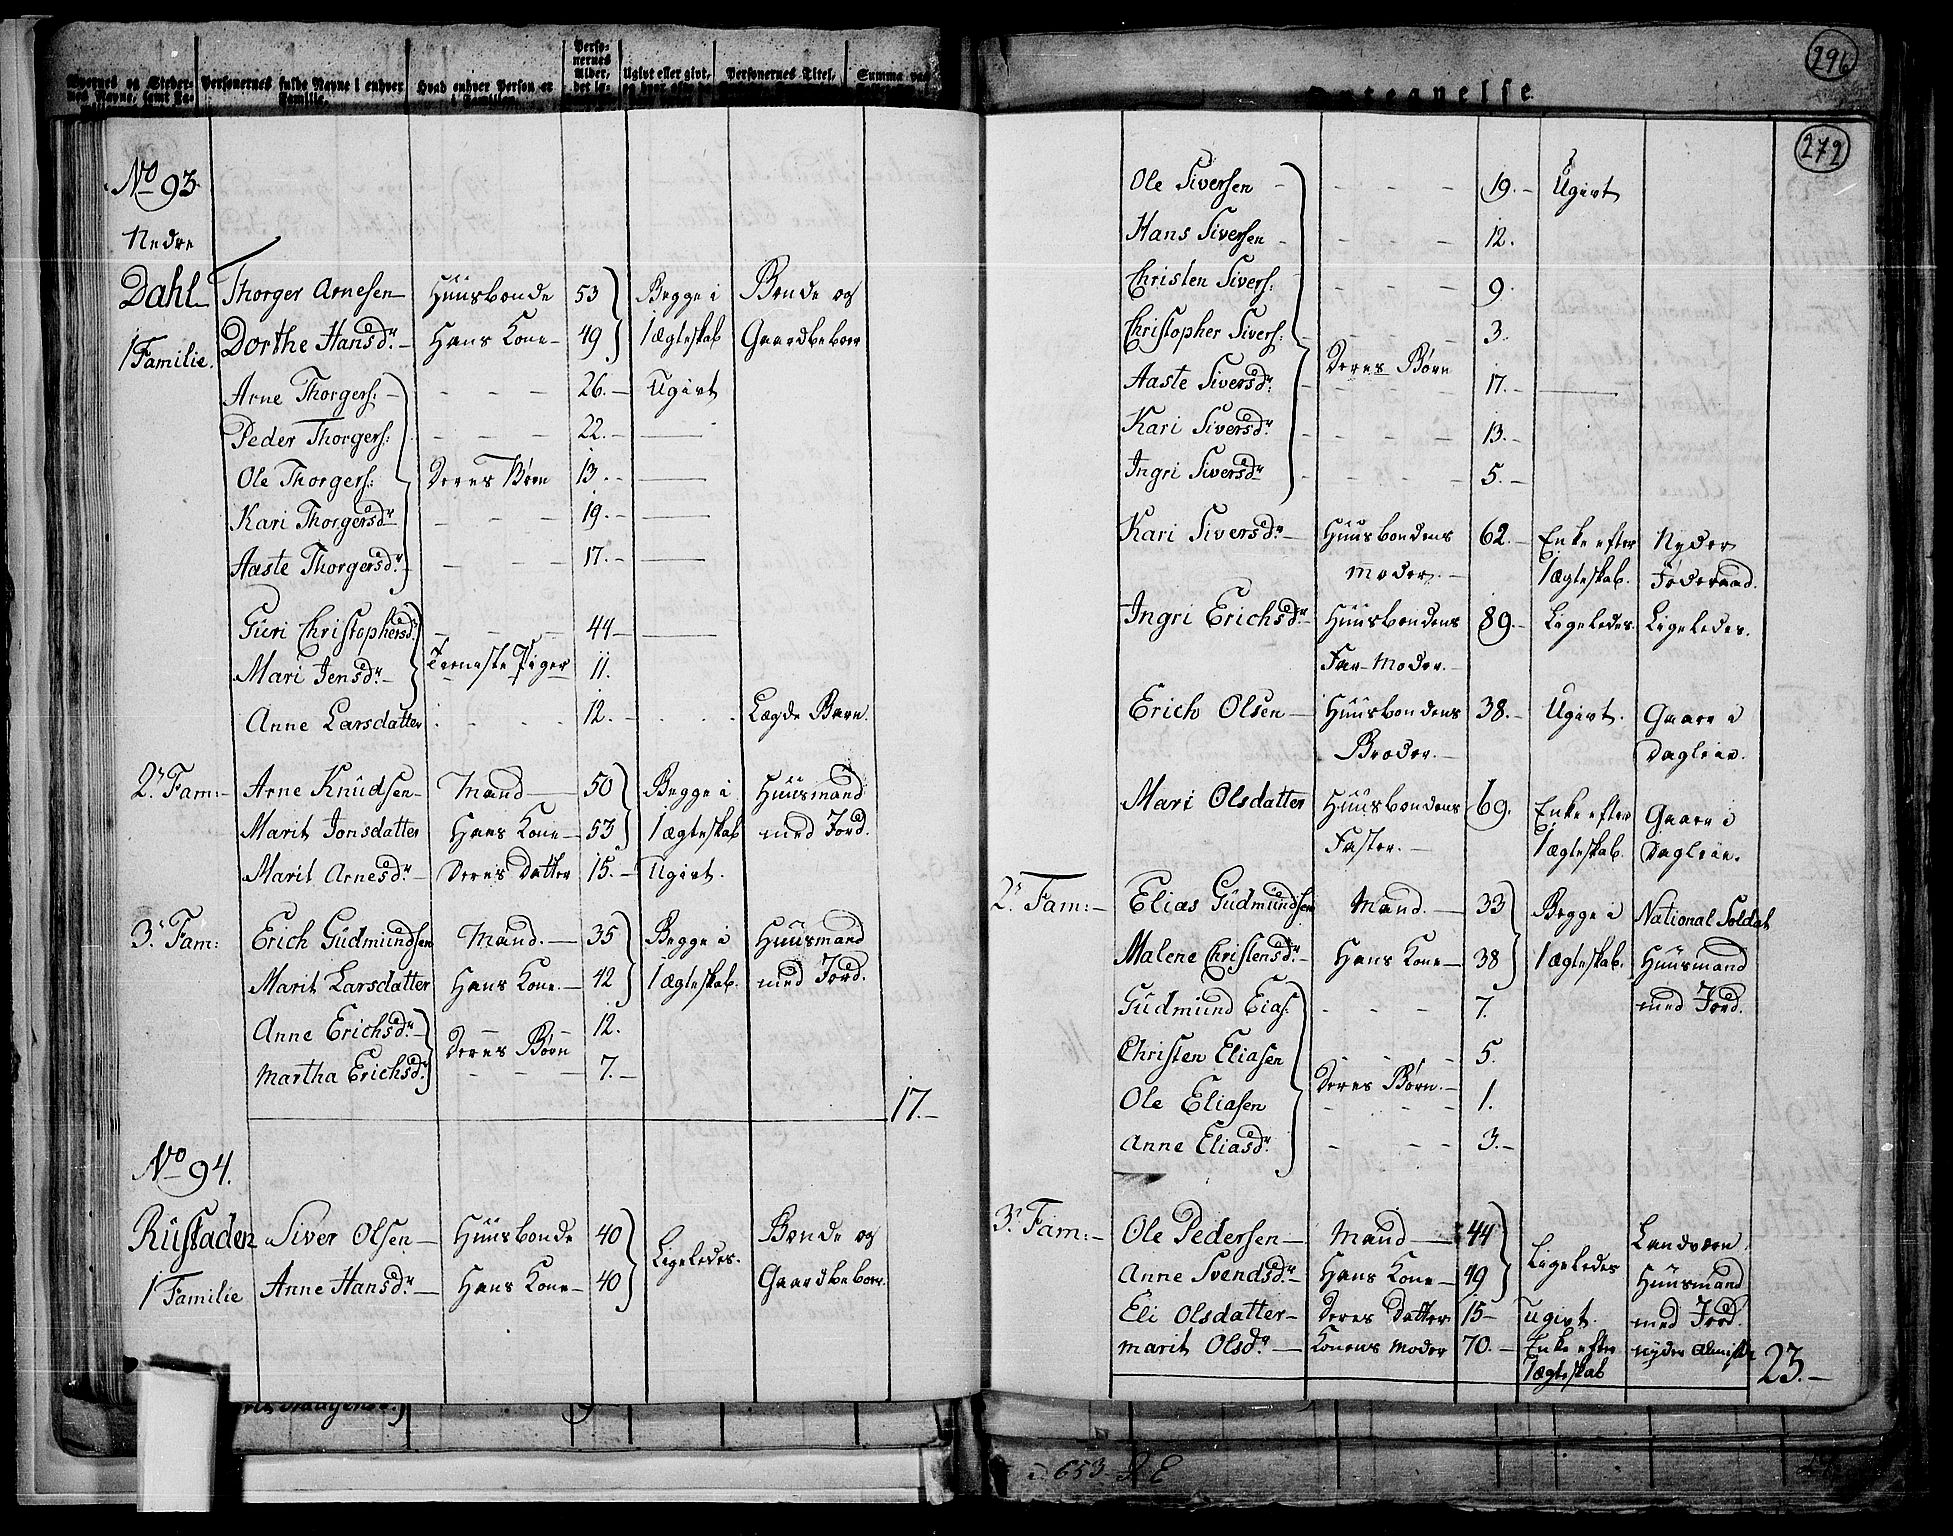 Personernes fulde Navne i enhver Familie.
Hvad enhver Person er i Familien.
Personernes Alder,
Ugivt eller givt,
Personernes Titel,
Summa
296
272
No 93
Nedre
Dahl
1 Familie.
Thorger Arnesen Huusbonde 53 Begge i Bonde og
Dorthe Hansdr. Hans Kone 49 1 Ægteskab Gaardbeboer
Arne Thorgers: 26. Ugivt
Peder Thorgers: 22.
Ole Thorgers: Deres Børn 13.
Kari Thorgersdr 19.
Aaste Thorgersdr. 17.
Guri Christophersdr. 44
Mari Jensdr. Tieneste Piger 11.
Anne Larsdatter 12. Lægde Barn.
2. Fam: Arne Knudsen Mand 50 Begge i Huusmand
Marit Jonsdatter Hans Kone 53 1 Ægteskab med Jord.
Marit Arnesdr. Deres Datter 15. Ugivt.
3. Fam: Erich Gudmundsen Mand. 35 Begge i Huusmand
Marit Larsdatter Hans Kone. 42 1 Ægteskab. med Jord.
Anne Erichsdr. 12.
Deres Børn
Martha Erichsdr. 7.
17.
No 94.
Rustaden Siver Olsen Huusbonde 40 Ligeledes. Bonde og
1 Familie Anne Hansdr. Hans Kone 40 Gaardbeboer.
Ole Siversen 19. Ugivt
Hans Siversen 12.
Christen Sivers: 9.
Christopher Sivers: 3.
Deres Børn
Aaste Siversdr. 17.
Kari Siversdr. 13.
Ingri Siversdr 5.
Kari Siversdr. Huusbondens 62. Enke efter Nyder
Moder. 1 Ægteskab. Føderaad.
Ingri Erichsdr. Huusbondens 89. Ligeledes. Ligeledes.
Far-Moder.
Erich Olsen Huusbondens 38. Ugivt. Gaaer i
Broder. Dagleie.
Mari Olsdatter Huusbondens 69. Enke efter Gaaer i
Faster. 1 Ægteskab. Dagleie.
2. Fam: Elias Gudmundsen Mand. 33 Begge i National Soldat
Malene Christensdr. Hans Kone 38 1 Ægteskab. Huusmand
Gudmund Eias: 7. med Jord.
Christen Eliasen 5.
Deres Børn.
Ole Eliasen 1.
Anne Eliasdr. 3.
3. Fam: Ole Pedersen Mand 44 Ligeledes Landværn
Anne Svendsdr. Hans Kone 49 Huusmand
Eli Olsdatter Deres Datter 15 Ugivt. med Jord.
Marit Olsdr. Konens Moder 70. Enke efter nyder
1 Ægteskab
23.